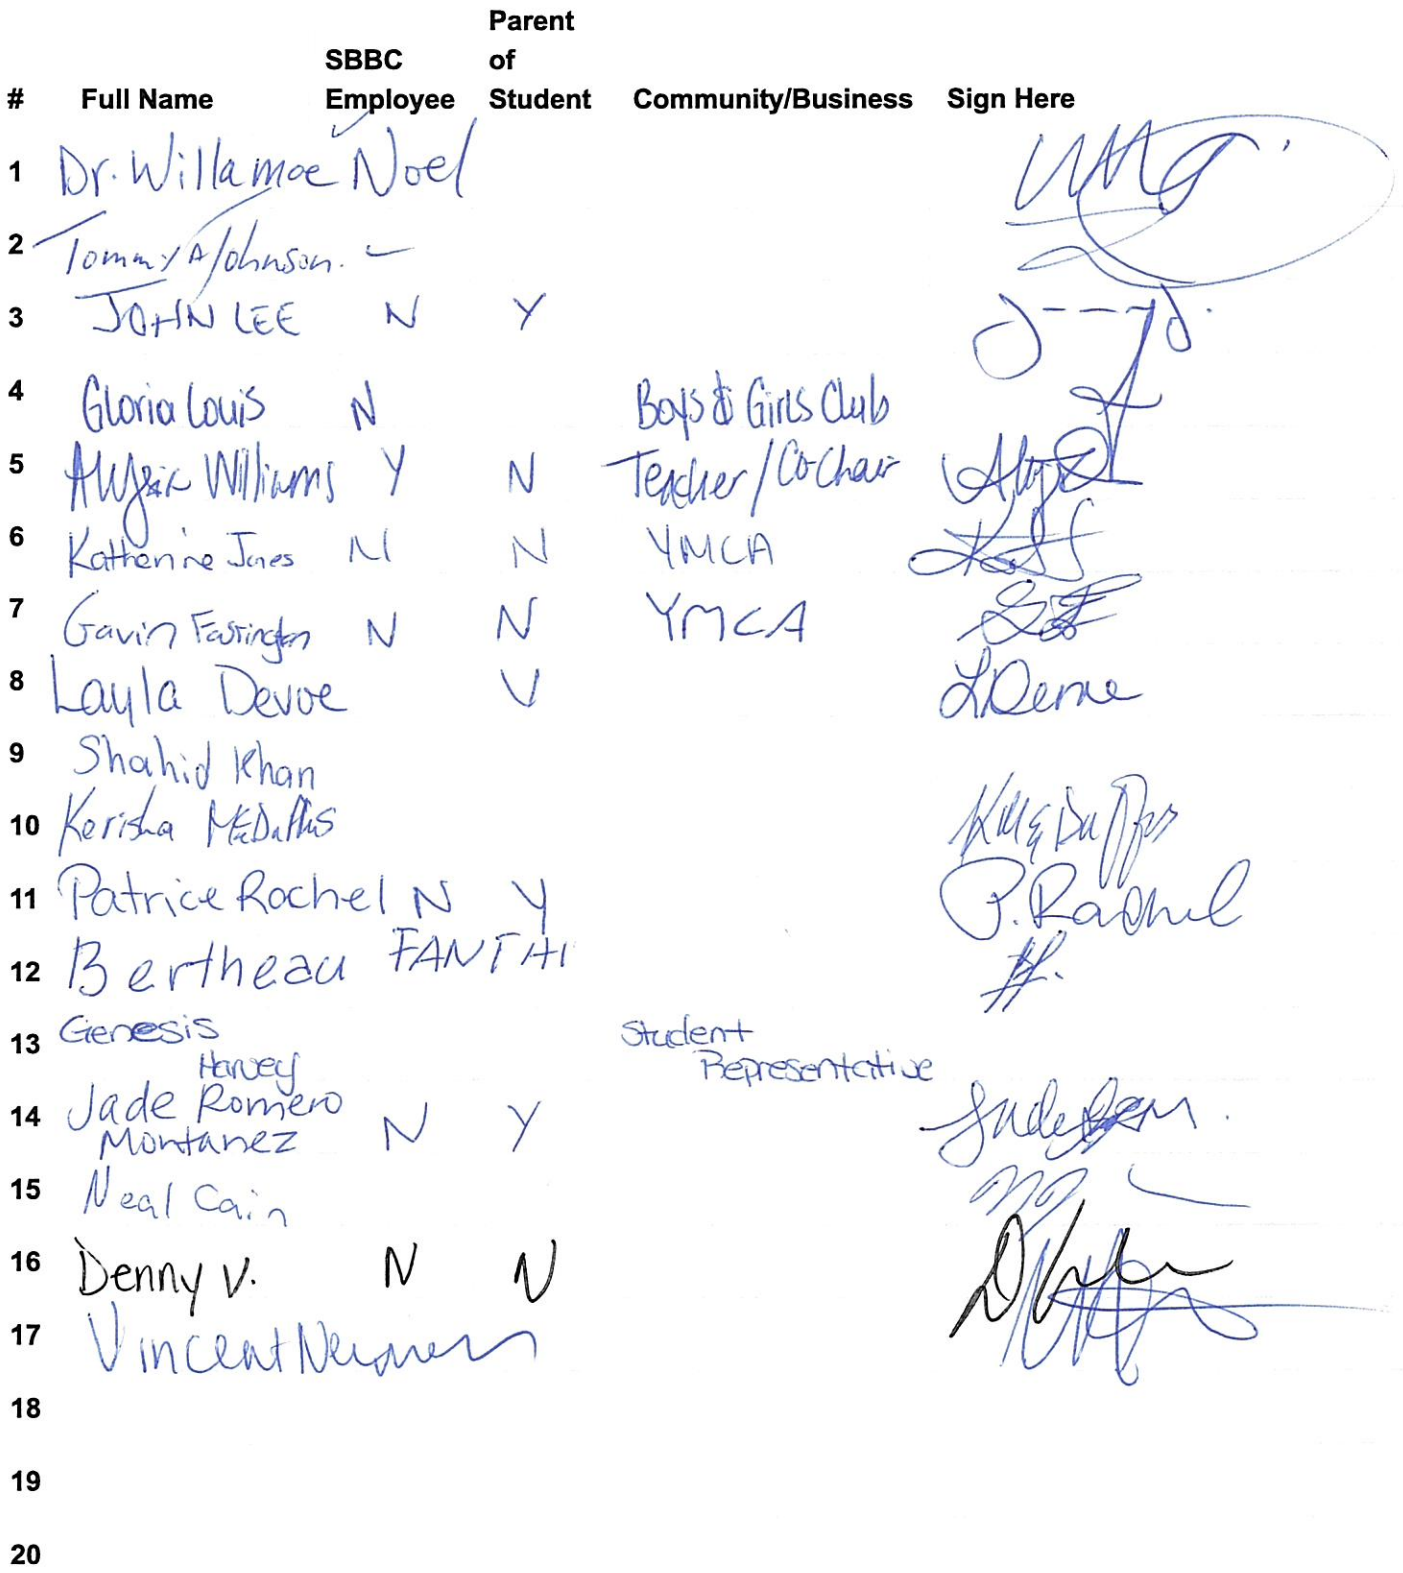 Parent
SBBC of
# Full Name Employee Student Community/Business Sign Here
1 Dr. Willamae Noel ✓
2 Tommy A Johnson. ✓
3 JOHN LEE N Y
4 Gloria Louis N Boys & Girls Club
5 Williams Y N Teacher/Co-Chair
6 Katherine Jones N N YMCA
7 Gavin Farrington N N YMCA
8 Layla Devoe
9 Shahid Khan
10 Kerisha
11 Patrice Rachel N Y P. Rachel
12 Bertheau
13 Genesis Student
Harvey Representative
14 Jade Romero N Y
Montanez
15 Neal Cain
16 Denny V. N N
17 Vincent
18
19
20